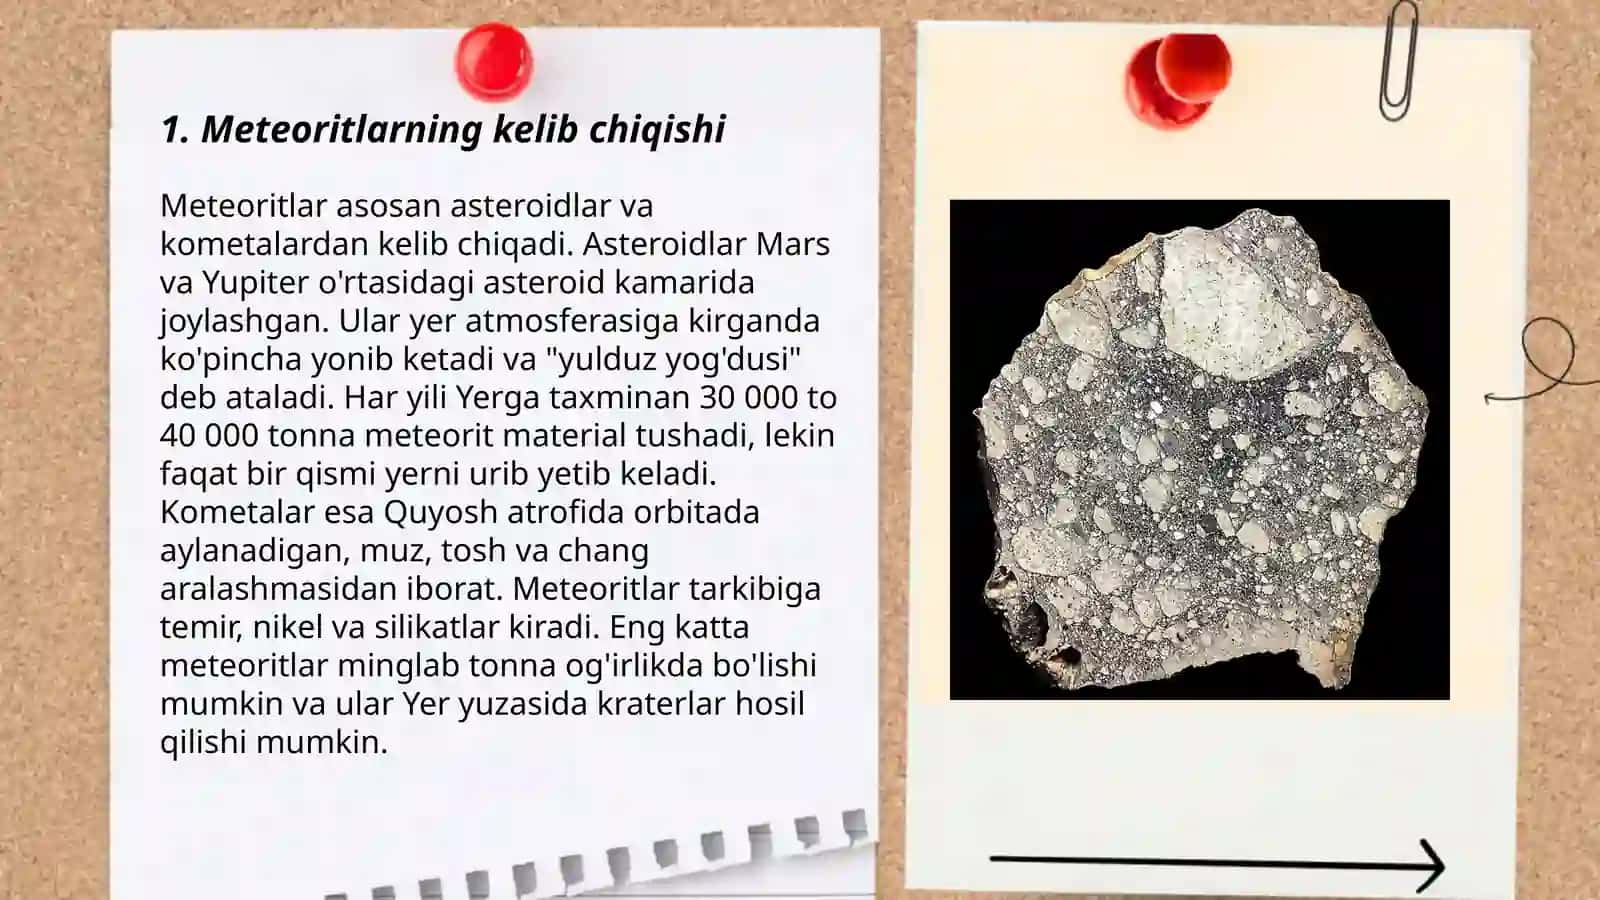 1. Meteoritlarning kelib chiqishi
Meteoritlar asosan asteroidlar va
kometalardan kelib chiqadi. Asteroidlar Mars
va Yupiter o'rtasidagi asteroid kamarida
joylashgan. Ular yer atmosferasiga kirganda
ko'pincha yonib ketadi va "yulduz yog'dusi"
deb ataladi. Har yili Yerga taxminan 30 000 to
40 000 tonna meteorit material tushadi, lekin
faqat bir qismi yerni urib yetib keladi.
Kometalar esa Quyosh atrofida orbitada
aylanadigan, muz, tosh va chang
aralashmasidan iborat. Meteoritlar tarkibiga
temir, nikel va silikatlar kiradi. Eng katta
meteoritlar minglab tonna og'irlikda bo'lishi
mumkin va ular Yer yuzasida kraterlar hosil
qilishi mumkin.